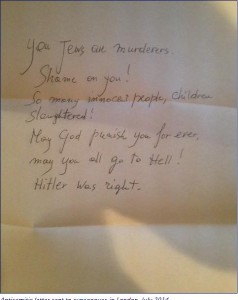 You Jews are murderers.
Shame on you!
So many innocent people, children
slaughtered!
May God punish you for ever,
may you all go to Hell!
Hitler was right.
Antisemitic letter sent to synagogues in London, July 2014